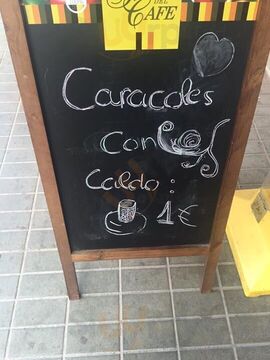 DEL
CAFE
Caracoles
con
Caldo:
1€